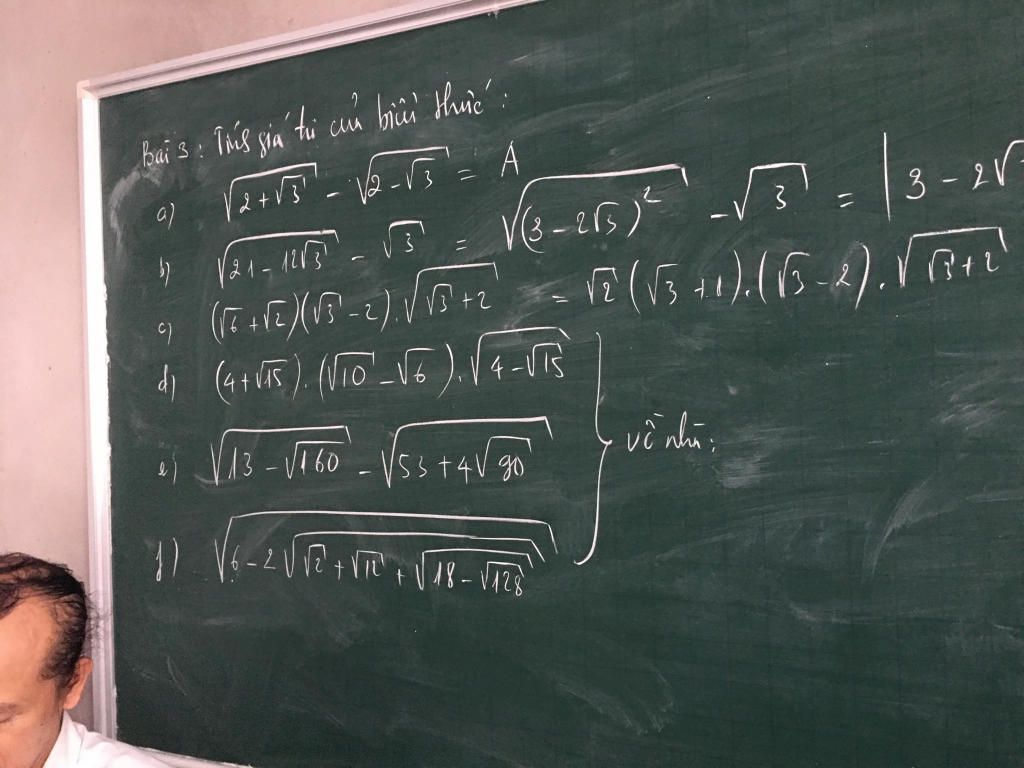 Bài 3: Tính giá trị của biểu thức:
a) √(2+√3) - √(2-√3) = A
b) √(21-12√3) - √3 = √((3-2√3)²) - √3 = |3-2√
c) (√6+√2)(√3-2).√(√3+2) = √2(√3+1).(√3-2).√(√3+2
d) (4+√15).(√10-√6).√(4-√15)
e) √(13-√160) - √(53+4√90)
f) √(6-2√(√2+√12+√(18-√128)))
về nhà: